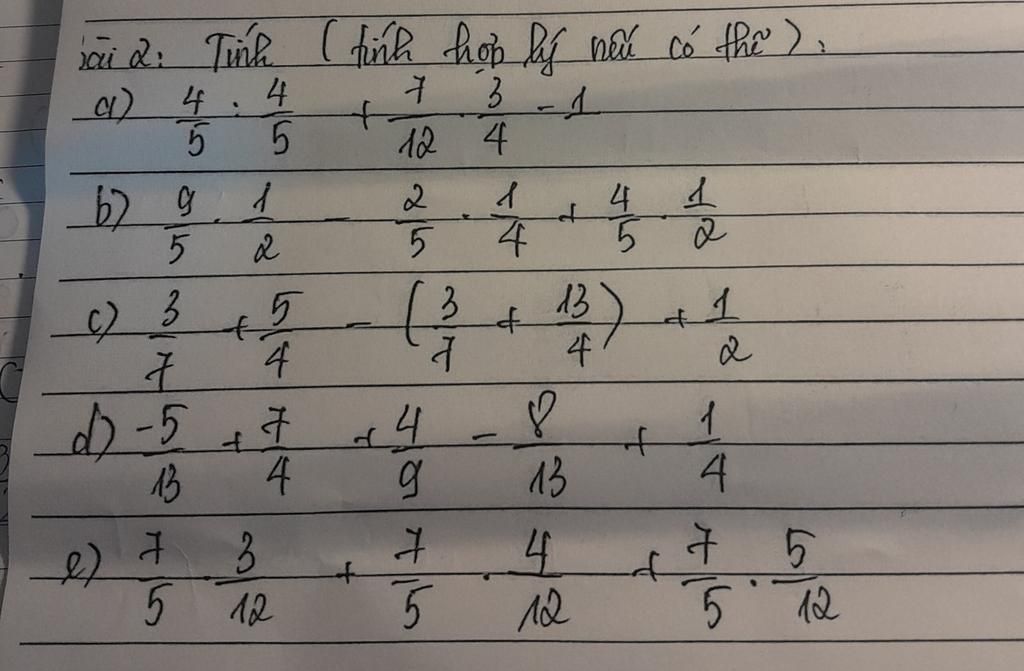 bài 2: Tính (tính hợp lý nếu có thể):
a) 4/5 : 4/5 + 7/12 . 3/4 - 1
b) 9/5 . 1/2 - 2/5 . 1/4 + 4/5 . 1/2
c) 3/7 + 5/4 - (3/7 + 13/4) + 1/2
d) -5/13 + 7/4 + 4/9 - 8/13 + 1/4
e) 7/5 . 3/12 + 7/5 . 4/12 + 7/5 . 5/12